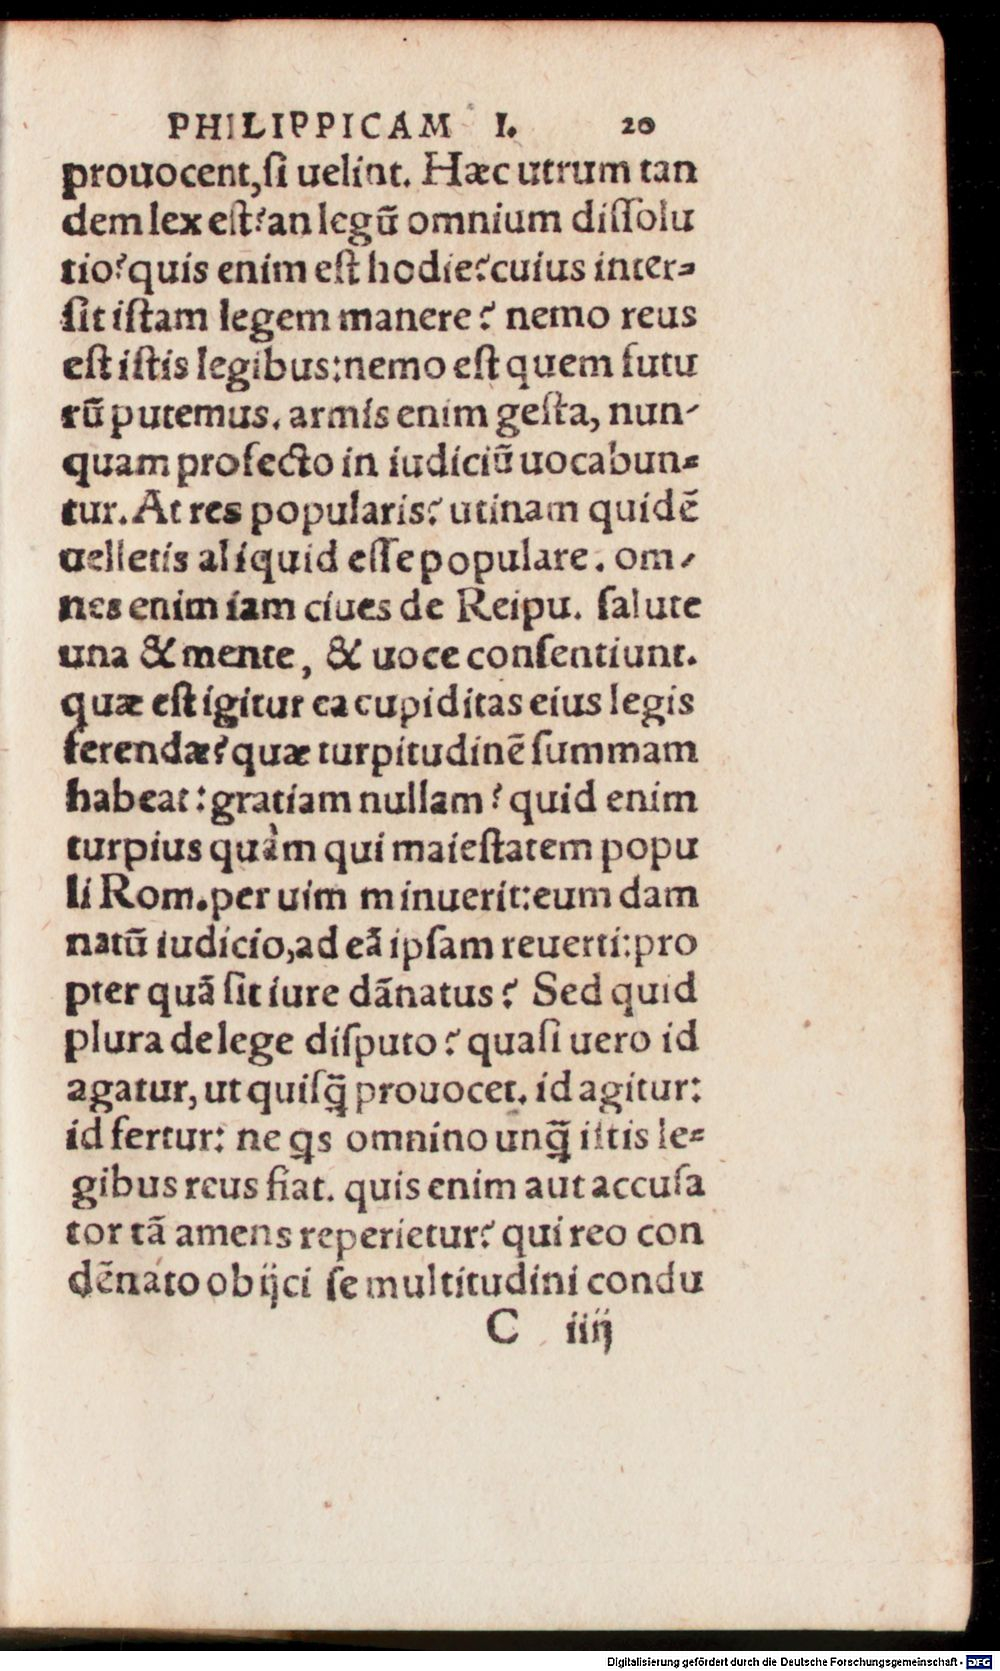 PHILIPPICAM I. 20
prouocent,ſi uelint. Hæc utrum tan
dem lex eſt?an legū omnium diſſolu
tio?quis enim eſt hodie?cuius inter-
ſit iſtam legem manere? nemo reus
eſt iſtis legibus:nemo eſt quem futu
rū putemus. armis enim geſta, nun-
quam profecto in iudiciū uocabun-
tur. At res popularis? utinam quidē
uelletis aliquid eſſe populare. om-
nes enim iam ciues de Reipu. ſalute
una & mente, & uoce conſentiunt.
quæ eſt igitur ea cupiditas eius legis
ferendæ? quæ turpitudinē ſummam
habeat: gratiam nullam? quid enim
turpius quàm qui maieſtatem popu
li Rom. per uim minuerit:eum dam
natū iudicio,ad eā ipſam reuerti:pro
pter quā ſit iure dānatus? Sed quid
plura de lege diſputo? quaſi uero id
agatur, ut quiſꝗ̃ prouocet. id agitur:
id fertur: ne ꝗs omnino unꝗ̃ iſtis le-
gibus reus fiat. quis enim aut accuſa
tor tā amens reperietur? qui reo con
dēnato obijci ſe multitudini condu
C iiij
Digitalisierung gefördert durch die Deutsche Forschungsgemeinschaft - DFG